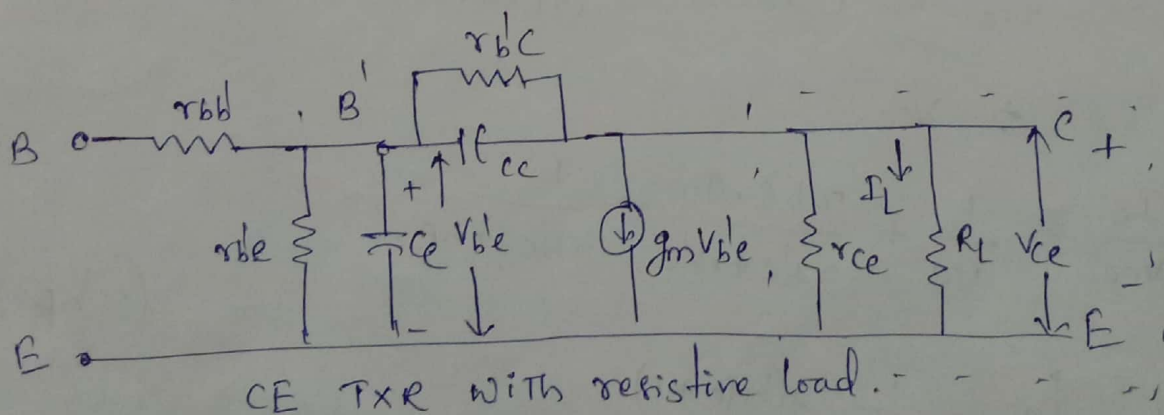 rb'c
rbb' B'
B Cc C +
IL
rb'e + Ce Vb'e gmVb'e rce RL Vce
- -
E E
CE TXR with resistive load.